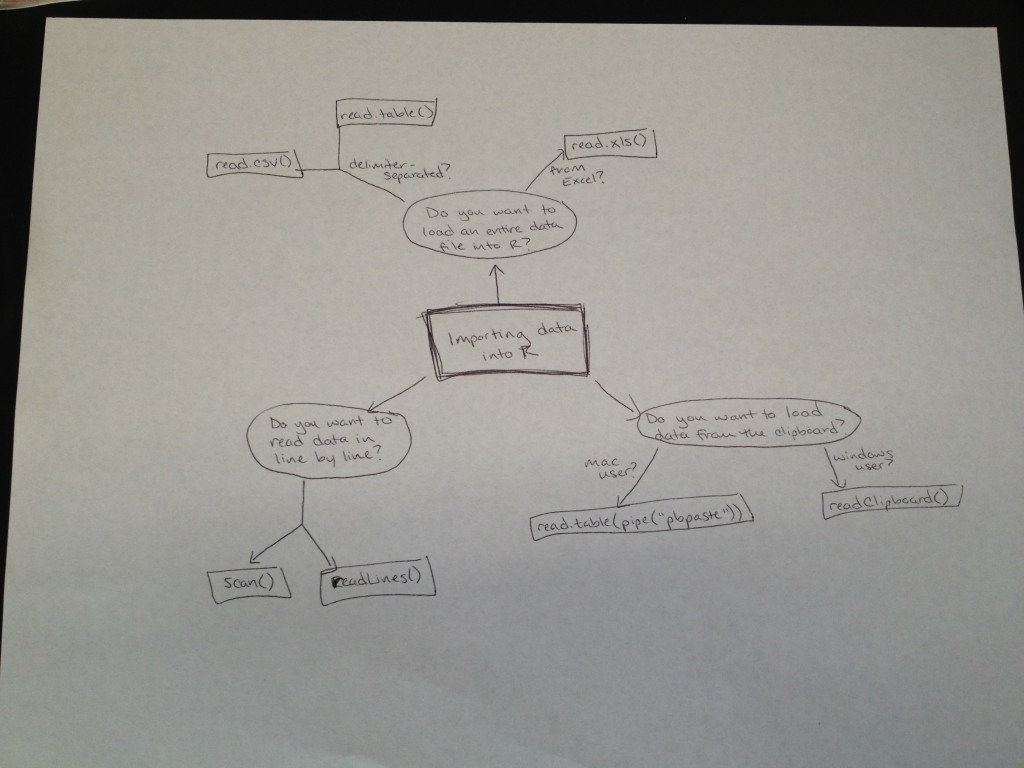 read.table()
read.csv()
delimiter-
separated?
read.xls()
from
Excel?
Do you want to
load an entire data
file into R?
Importing data
into R
Do you want to
read data in
line by line?
scan()
readLines()
Do you want to load
data from the clipboard?
mac
user?
read.table(pipe("pbpaste"))
windows
user?
readClipboard()